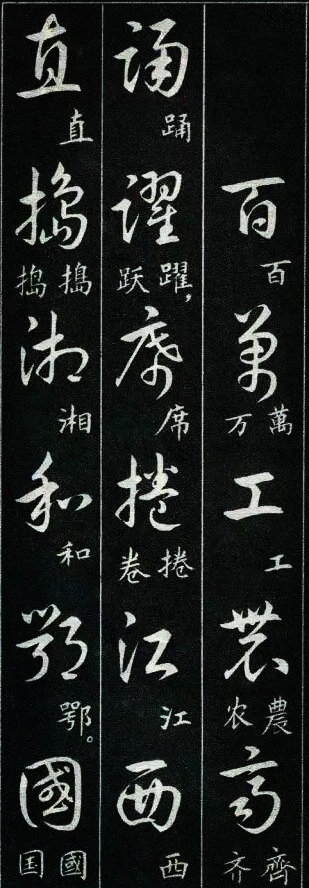 百萬工農齊
百 萬万 工 農农 齊齐
踊躍席捲江西
踊 躍,跃 席 捲卷 江 西
直搗湘和鄂國
直 搗捣 湘 和 鄂。 國国